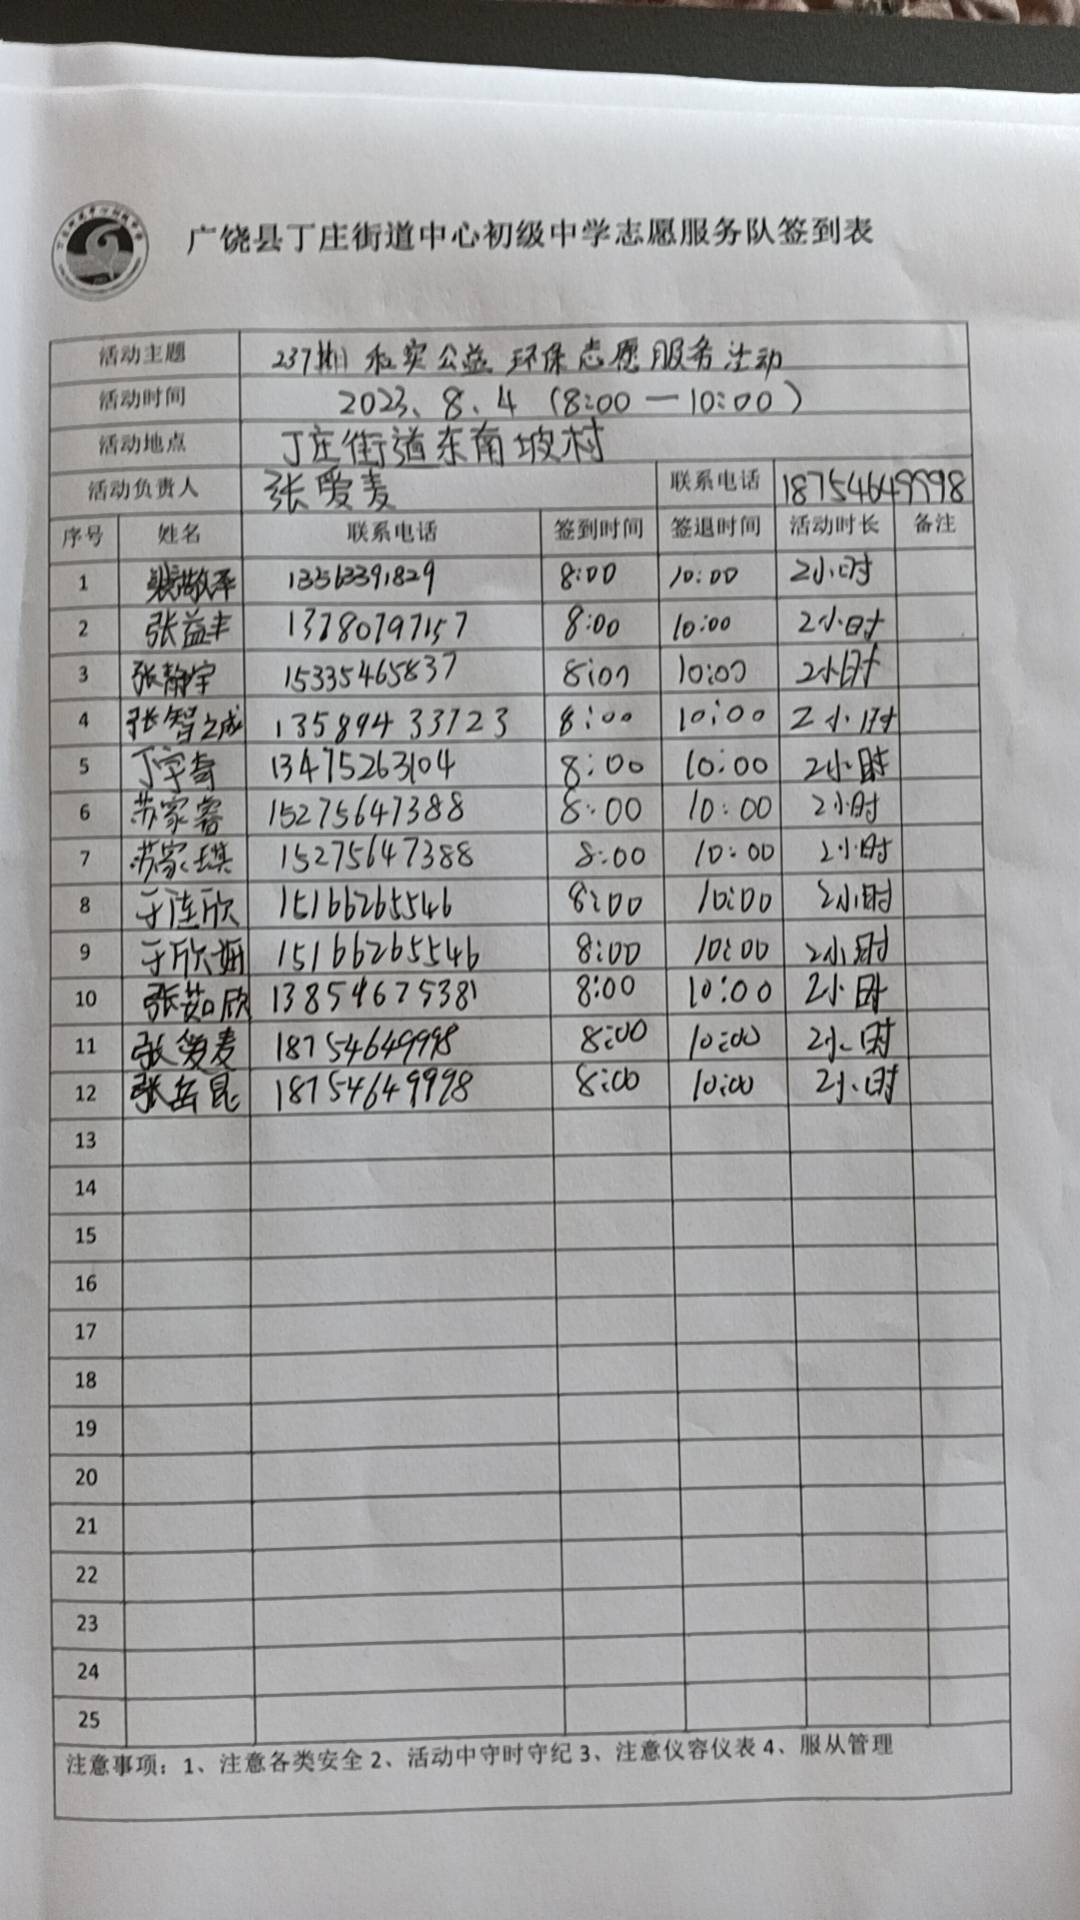 广饶县丁庄街道中心初级中学志愿服务队签到表
活动主题 237期 和实公益 环保志愿服务活动
活动时间 2023、8、4 (8:00—10:00)
活动地点 丁庄街道东南坡村
活动负责人 张爱麦 联系电话 18754649998
序号 姓名 联系电话 签到时间 签退时间 活动时长 备注
1 13563391829 8:00 10:00 2小时
2 张益丰 13780797157 8:00 10:00 2小时
3 张静宇 15335465837 8:00 10:00 2小时
4 张智成 13589433723 8:00 10:00 2小时
5 丁宇奇 13475263104 8:00 10:00 2小时
6 苏家睿 15275647388 8:00 10:00 2小时
7 苏家琪 15275647388 8:00 10:00 2小时
8 于连欣 15166265546 8:00 10:00 2小时
9 于欣妍 15166265546 8:00 10:00 2小时
10 张茹欣 13854675381 8:00 10:00 2小时
11 张爱麦 18754649998 8:00 10:00 2小时
12 张岳昆 18754649998 8:00 10:00 2小时
13
14
15
16
17
18
19
20
21
22
23
24
25
注意事项：1、注意各类安全 2、活动中守时守纪 3、注意仪容仪表 4、服从管理